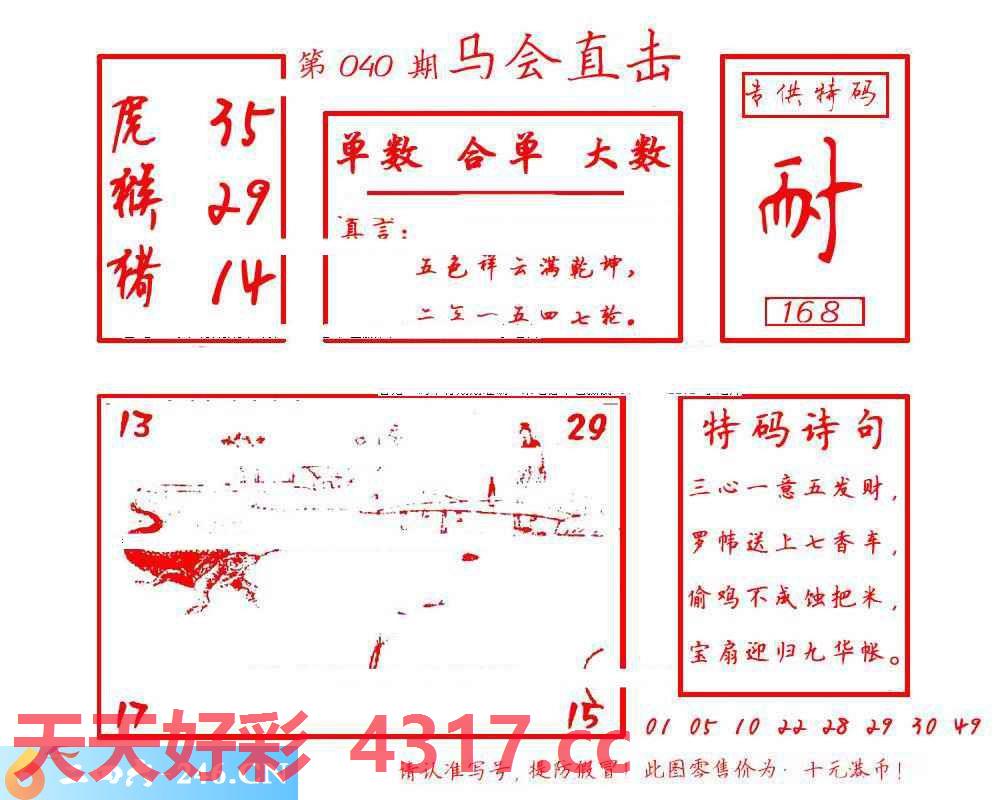 第 040 期 马会直击
虎 35
猴 29
猪 14
单数 合单 大数
真言：
五色祥云满乾坤，
二三一五四七轮。
专供特码
耐
168
13 29
17 15
特码诗句
三心一意五发财，
罗帏送上七香车，
偷鸡不成蚀把米，
宝扇迎归九华帐。
01 05 10 22 28 29 30 49
天天好彩 4317.cc
246.CN
请认准写号，提防假冒！此图零售价为：十元港币！